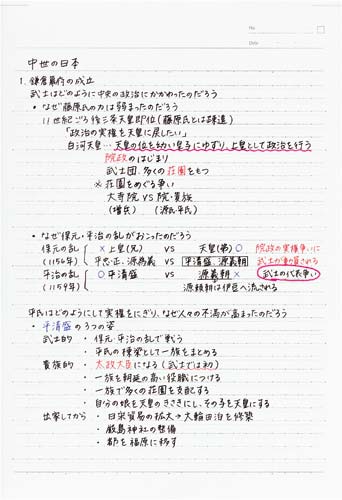 No.
Date
中世の日本
1. 鎌倉幕府の成立
武士はどのように中央の政治にかかわったのだろう
・なぜ藤原氏の力は弱まったのだろう
11世紀ごろ 後三条天皇即位(藤原氏とは疎遠)
「政治の実権を天皇に戻したい」
白河天皇…天皇の位を幼い皇子にゆずり、上皇として政治を行う
院政のはじまり
武士団、多くの荘園をもつ
※荘園をめぐる争い
大寺院 VS 院・貴族
(僧兵) (源氏・平氏)
・なぜ保元・平治の乱がおこったのだろう
保元の乱 ×上皇(兄) VS 天皇(弟)○ 院政の実権争いに
(1156年) 平忠正、源為義 VS 平清盛、源義朝 武士が動員される
平治の乱 ○平清盛 VS 源義朝× 武士の代表争い
(1159年) 源頼朝は伊豆へ流される
平氏はどのようにして実権をにぎり、なぜ人々の不満が高まったのだろう
・平清盛の3つの姿
武士的・保元・平治の乱で戦う
・平氏の棟梁として一族をまとめる
貴族的・太政大臣になる(武士では初)
・一族を朝廷の高い役職につける
・一族で多くの荘園を支配する
・自分の娘を天皇のきさきにし、その子を天皇にする
出家してから・日宋貿易の拡大→大輪田泊を修築
・厳島神社の整備
・都を福原に移す